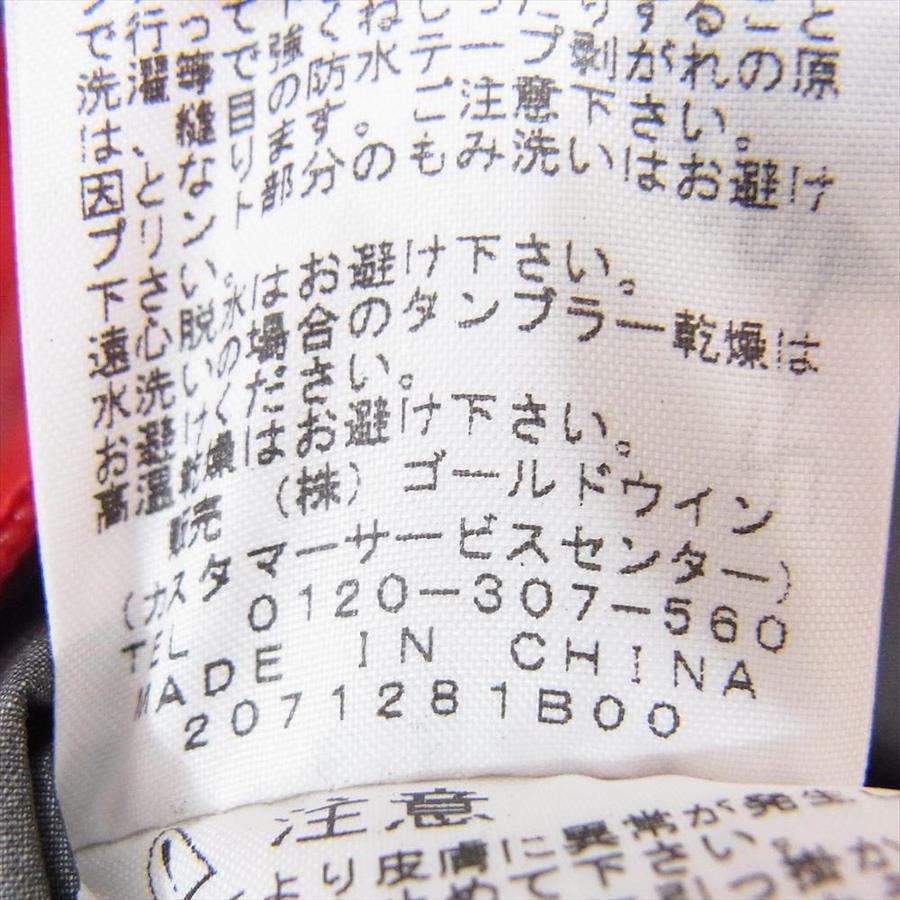 は、縫目の防水テープ剥がれの原
因となります。ご注意下さい。
プリント部分のもみ洗いはお避け
下さい。
遠心脱水はお避け下さい。
水洗いの場合のタンブラー乾燥は
お避けください。
高温乾燥はお避け下さい。
販売 (株) ゴールドウイン
(カスタマーサービスセンター)
TEL 0120-307-560
MADE IN CHINA
2071281B00
注意
より皮膚に異常が発生
めて下さい。